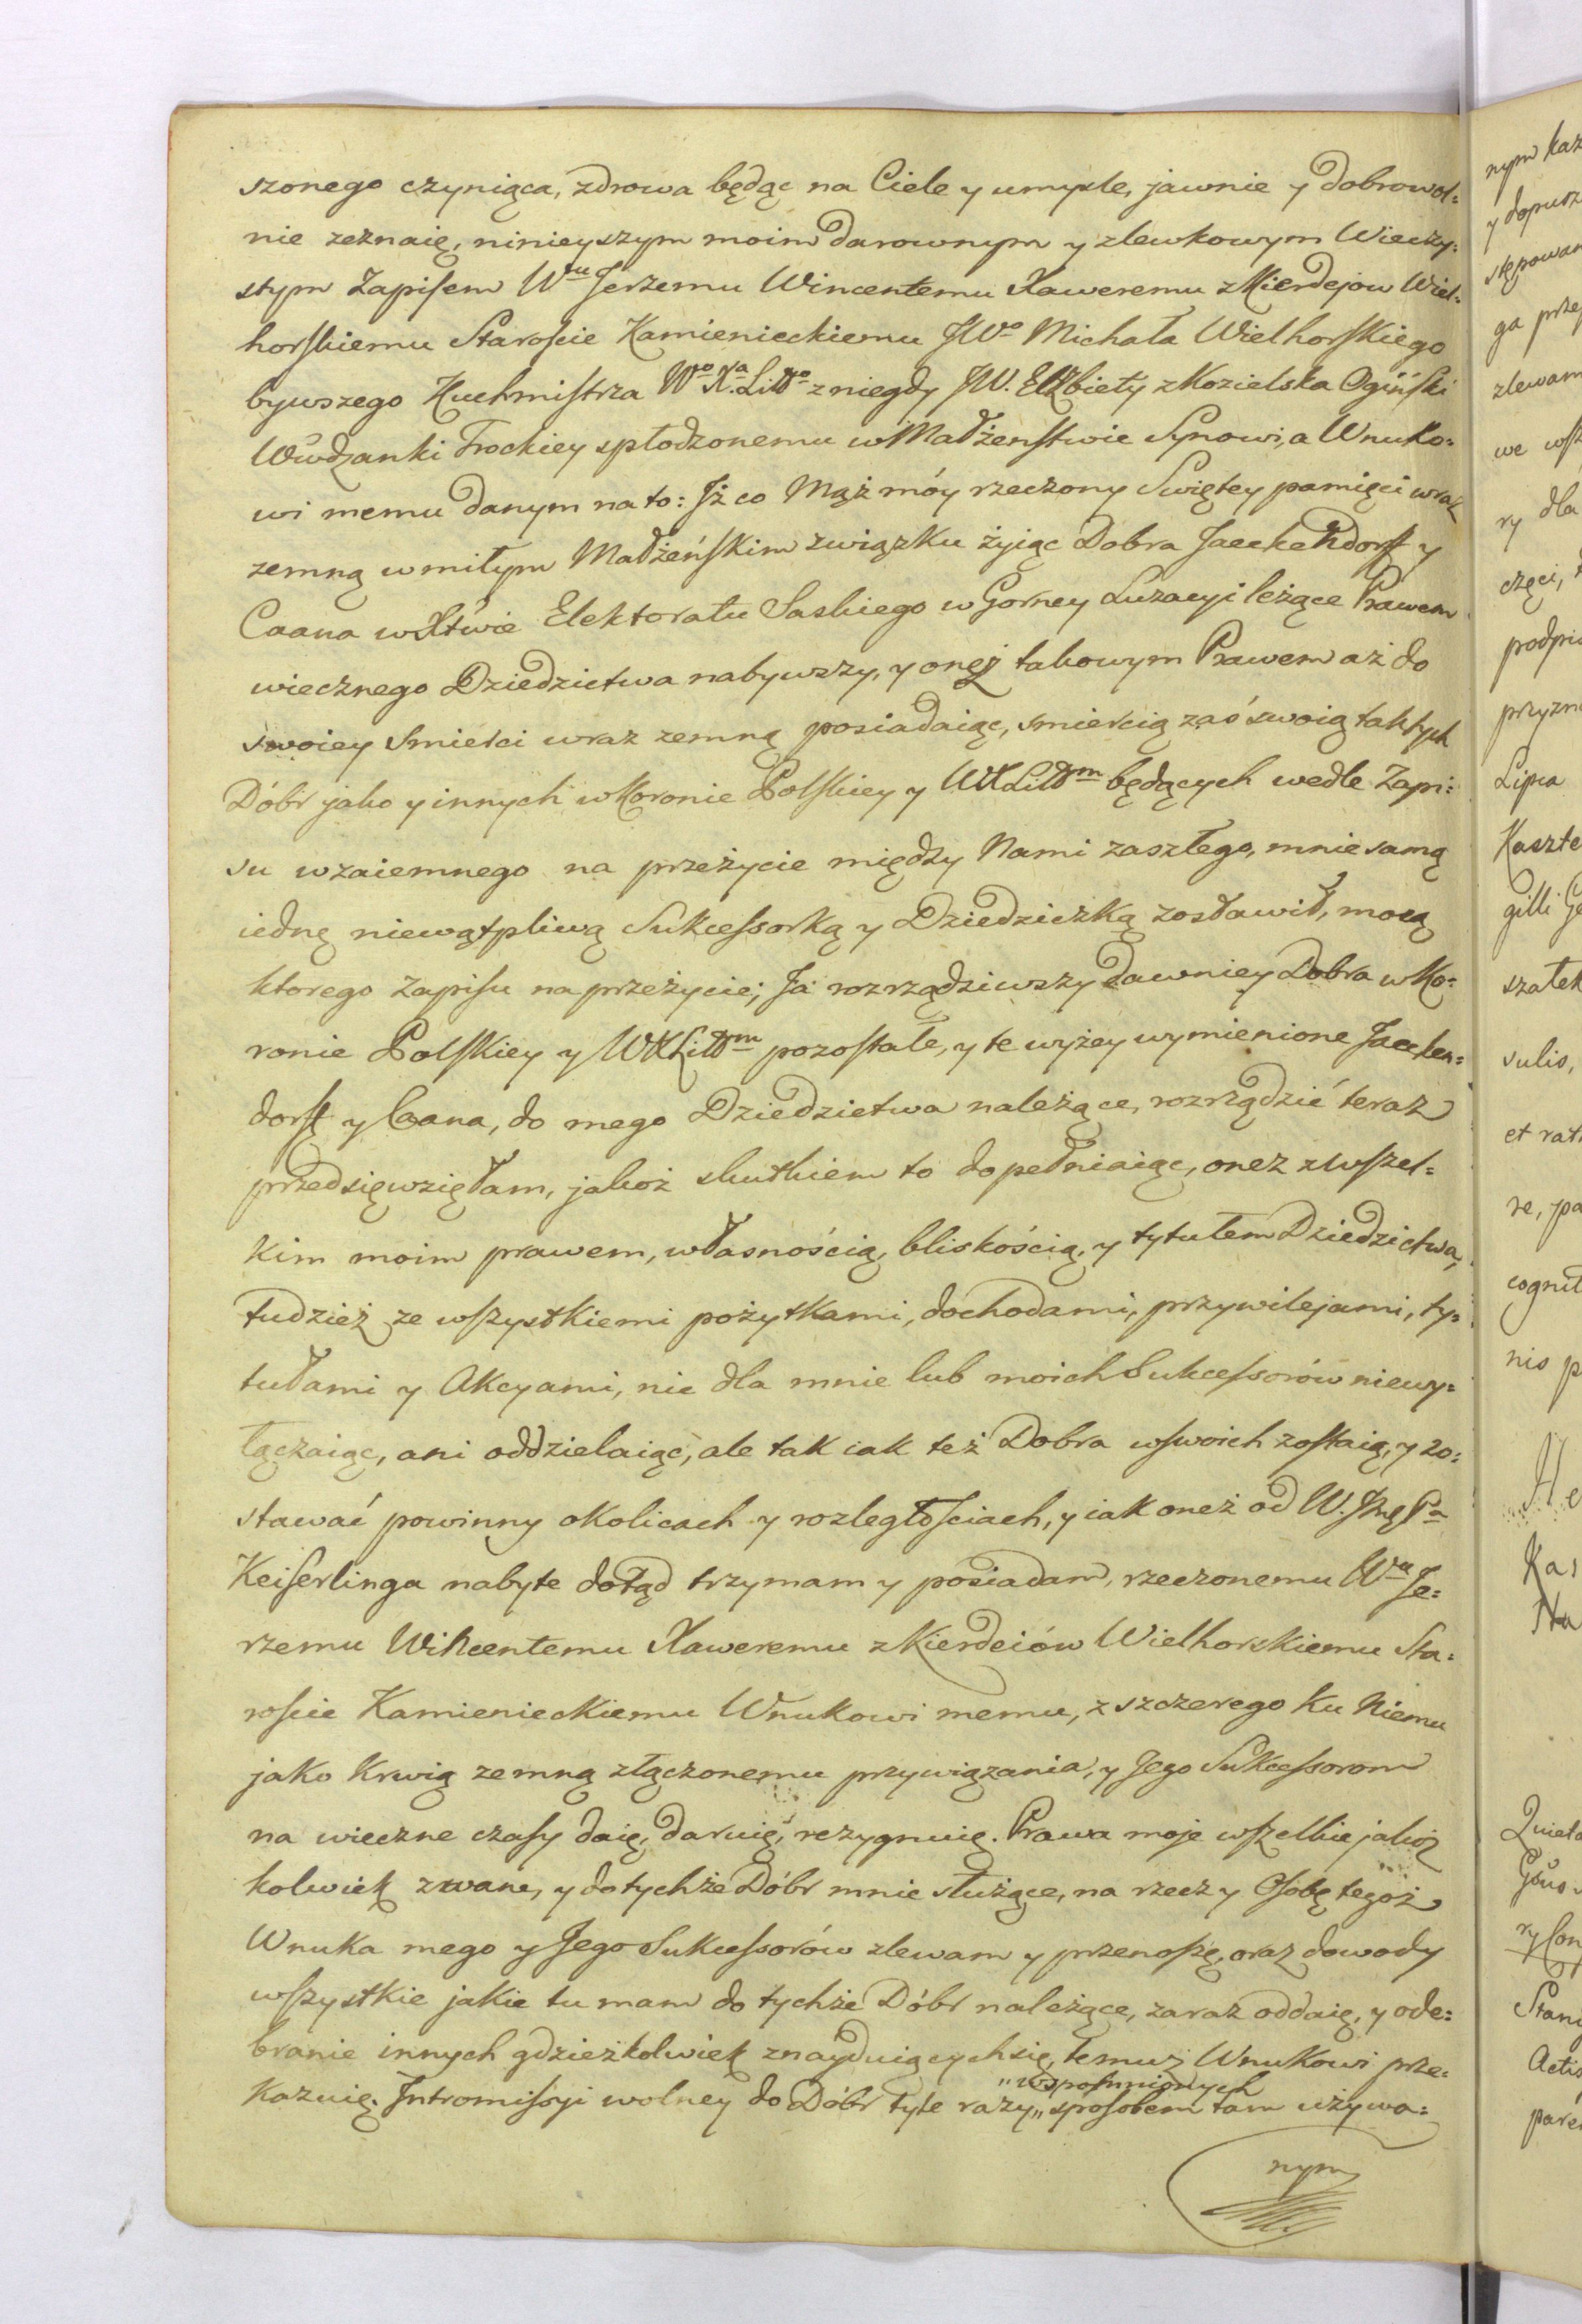 szonego czyniąca, zdrowa będąc na Ciele y umysle, jawnie y dobrowol=
nie zeznaię, ninieyszym moim darownym y zlewkowym Wieczy=
stym Zapisem Wmu Jerzemu Wincentemu Xaweremu z Kierdejow Wiel=
horskiemu Staroscie Kamienieckiemu JWo Michała Wielhorskiego
bywszego Kuchmistrza Wo Xa Litto z niegdy JW. Elżbiety z Kozielska Ogiński
Wwdzanki Trockiey spłodzonemu w Małżenstwie Synowi, a Wnuko=
wi memu danym na to: Jż co Mąż móy rzeczony Swiętey pamięci wraz
zemną w miłym Małżeńskim związku żyiąc Dobra Jaeckendorff y
Caana w Xtwie Elektoratu Saskiego w Gorney Luzacyi leżące Prawem
wiecznego Dziedzictwa nabywszy, y onęż takowym Prawem aż do
swoiey Smierci wraz zemną posiadaiąc, smiercią zaś swoią tak tych
Dóbr jako y innych w Koronie Polskiey y WXLittm będących wedle Zapi=
su wzaiemnego na przeżycie między Nami zaszłego, mnie samą
iedną niewątpliwą Sukcessorką y Dziedziczką zosławił, mocą
ktorego Zapisu na przeżycie; Ja rozrządziwszy dawniey Dobra w Ko=
ronie Polskiey y WXLittm pozostałe, y te wyżey wymienione Jaecken=
dorff y Caana, do mego Dziedzictwa należące, rozrządzić teraz
przedsięwzięłam, jakoż skutkiem to dopełniaiąc, onez z wszel=
kim moim prawem, własnością, bliskością, y tytułem Dziedzictwa,
tudzież ze wszystkiemi pożytkami, dochodami, przywilejami, ty=
tułami y Akcyami, nic dla mnie lub moich Sukcessorów niewy=
łączaiąc, ani oddzielaiąc, ale tak iak też Dobra w swoich zostaią, y zo=
stawać powinny okolicach y rozległościach, y iak oneż od W. Jmę Pa
Keiserlinga nabyte dotąd trzymam y posiadam, rzeczonemu Wmu Je=
rzemu Wincentemu Xaweremu z Kierdeiów Wielhorskiemu Sta=
roscie Kamienieckiemu Wnukowi memu, z szczerego ku Niemu
jako Krwią zemną złączonemu przywiązania, y Jego Sukcessorom
na wieczne czasy daię, daruię, rezygnuię. Prawa moje wszelkie jakoż
kolwiek zwane, y do tychże Dóbr mnie służące, na rzecz y Osobę tegoż
Wnuka mego y Jego Sukcessorów zlewam y przenoszę, oraz dowody
wszystkie jakie tu mam do tychże Dóbr należące, zaraz oddaię, y ode=
branie innych gdzieżkolwiek znayduiących się, temuż Wnukowi prze=
kazuię. Intromissyi wolney do Dóbr tyle razy „wspomnionych sposobem tam używa=
nym